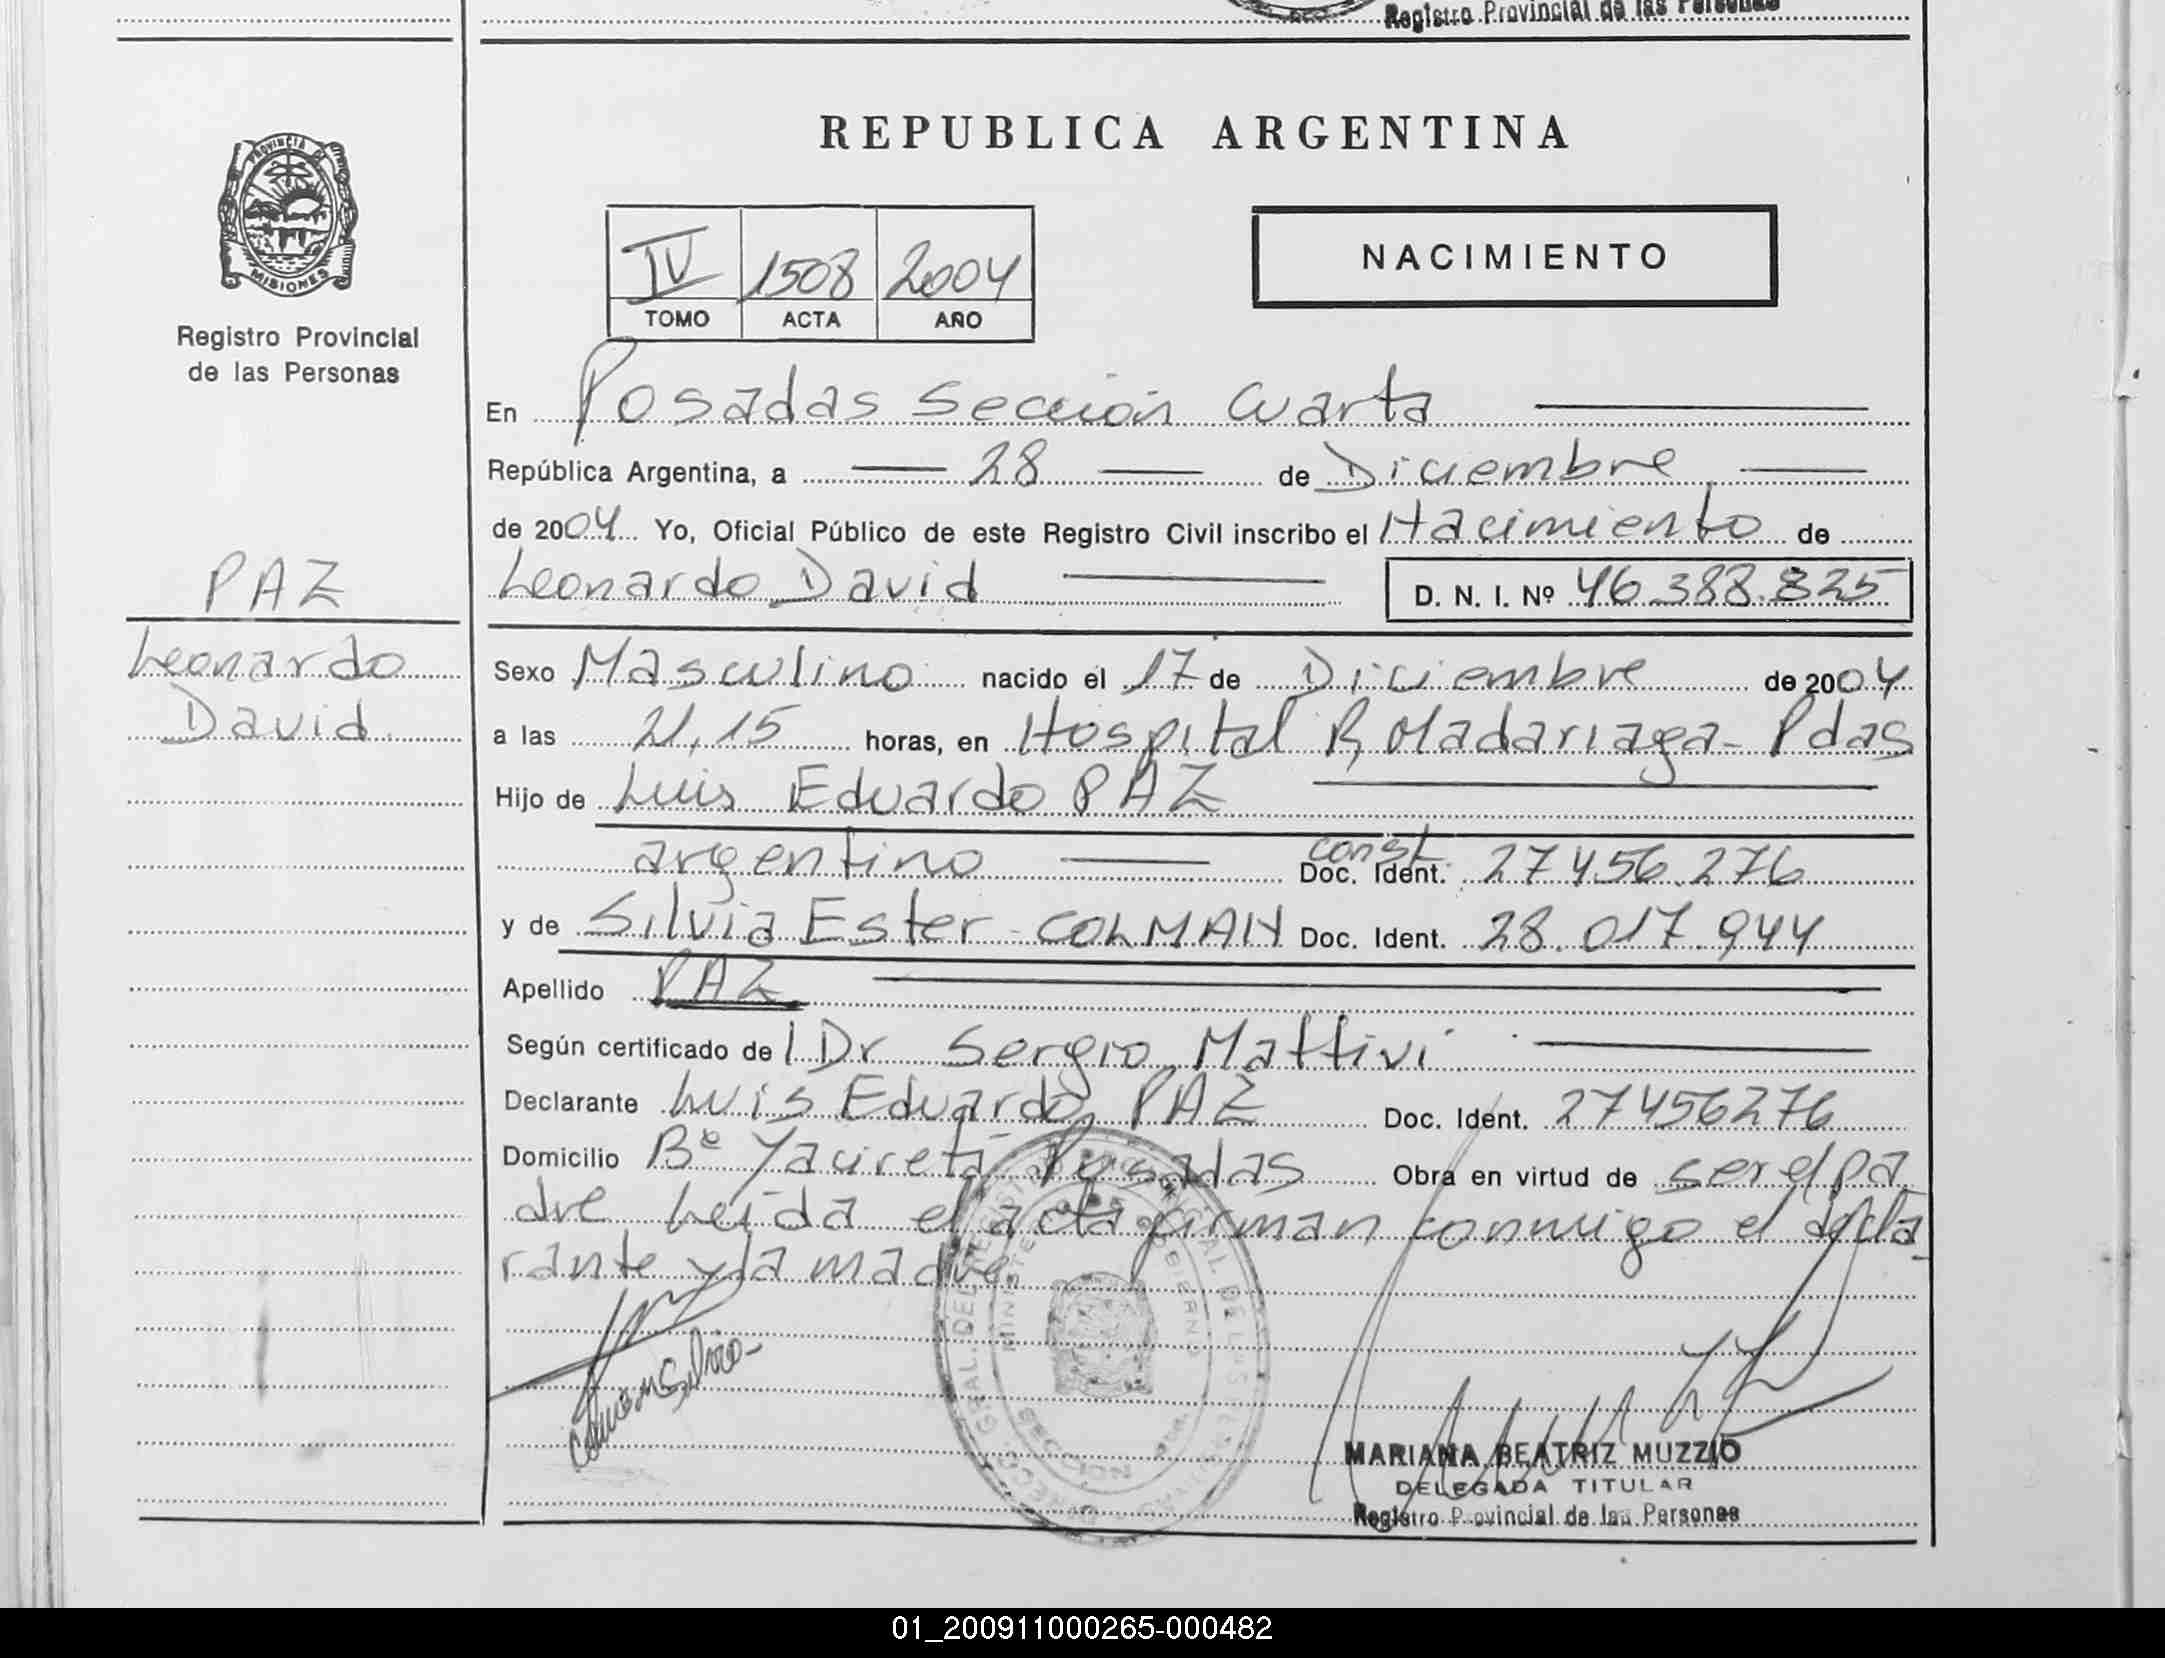 Registro Provincial de las Personas
REPUBLICA ARGENTINA
PROVINCIA DE
MISIONES
Registro Provincial
de las Personas
IV 1508 2004
TOMO ACTA AÑO
NACIMIENTO
En Posadas Sección Cuarta
República Argentina, a 28 de Diciembre
de 2004 Yo, Oficial Público de este Registro Civil inscribo el Nacimiento de
Leonardo David D. N. I. Nº 46.388.825
PAZ
Leonardo
David
Sexo Masculino nacido el 17 de Diciembre de 2004
a las 21,15 horas, en Hospital R, Madariaga - Pdas
Hijo de Luis Eduardo PAZ
argentino const. Doc. Ident. 27456.276
y de Silvia Ester - COLMAN Doc. Ident. 28.017.944
Apellido PAZ
Según certificado del Dr Sergio Mattivi
Declarante Luis Eduardo PAZ Doc. Ident. 27456276
Domicilio Bº Yacireta - Posadas Obra en virtud de ser el pa
dre Leida el acta firman conmigo el decla
rante y la madre
Colman Silvia
MARIANA BEATRIZ MUZZIO
DELEGADA TITULAR
Registro Provincial de las Personas
01_200911000265-000482